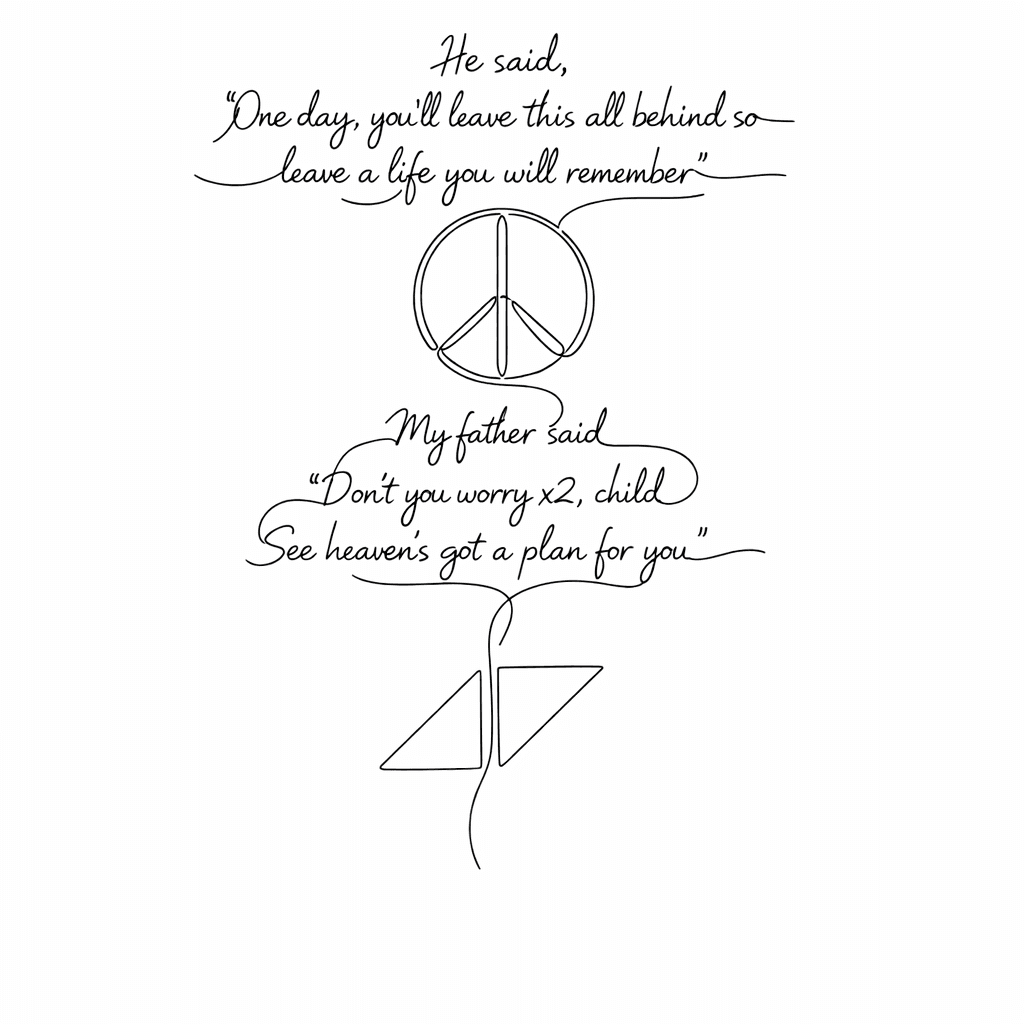 He said,
“One day, you'll leave this all behind so
leave a life you will remember”
My father said
“Don't you worry x2, child
See heaven's got a plan for you”